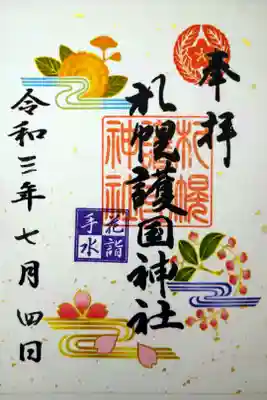 奉拝
札幌護国神社
札幌護国神社
花詣
手水
令和三年七月四日